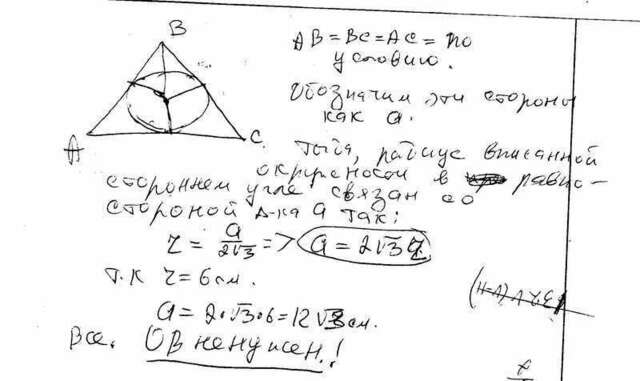 B
A
C
AB = BC = AC = по
условию.
Обозначим эти стороны
как a.
Тогда, радиус вписанной
окружности в равно-
стороннем угле связан со
стороной Δ-ка a так:
r = a/2√3 => a = 2√3 r
т.к r = 6 см.
a = 2·√3·6 = 12√3 см.
Все. OB не нужен!